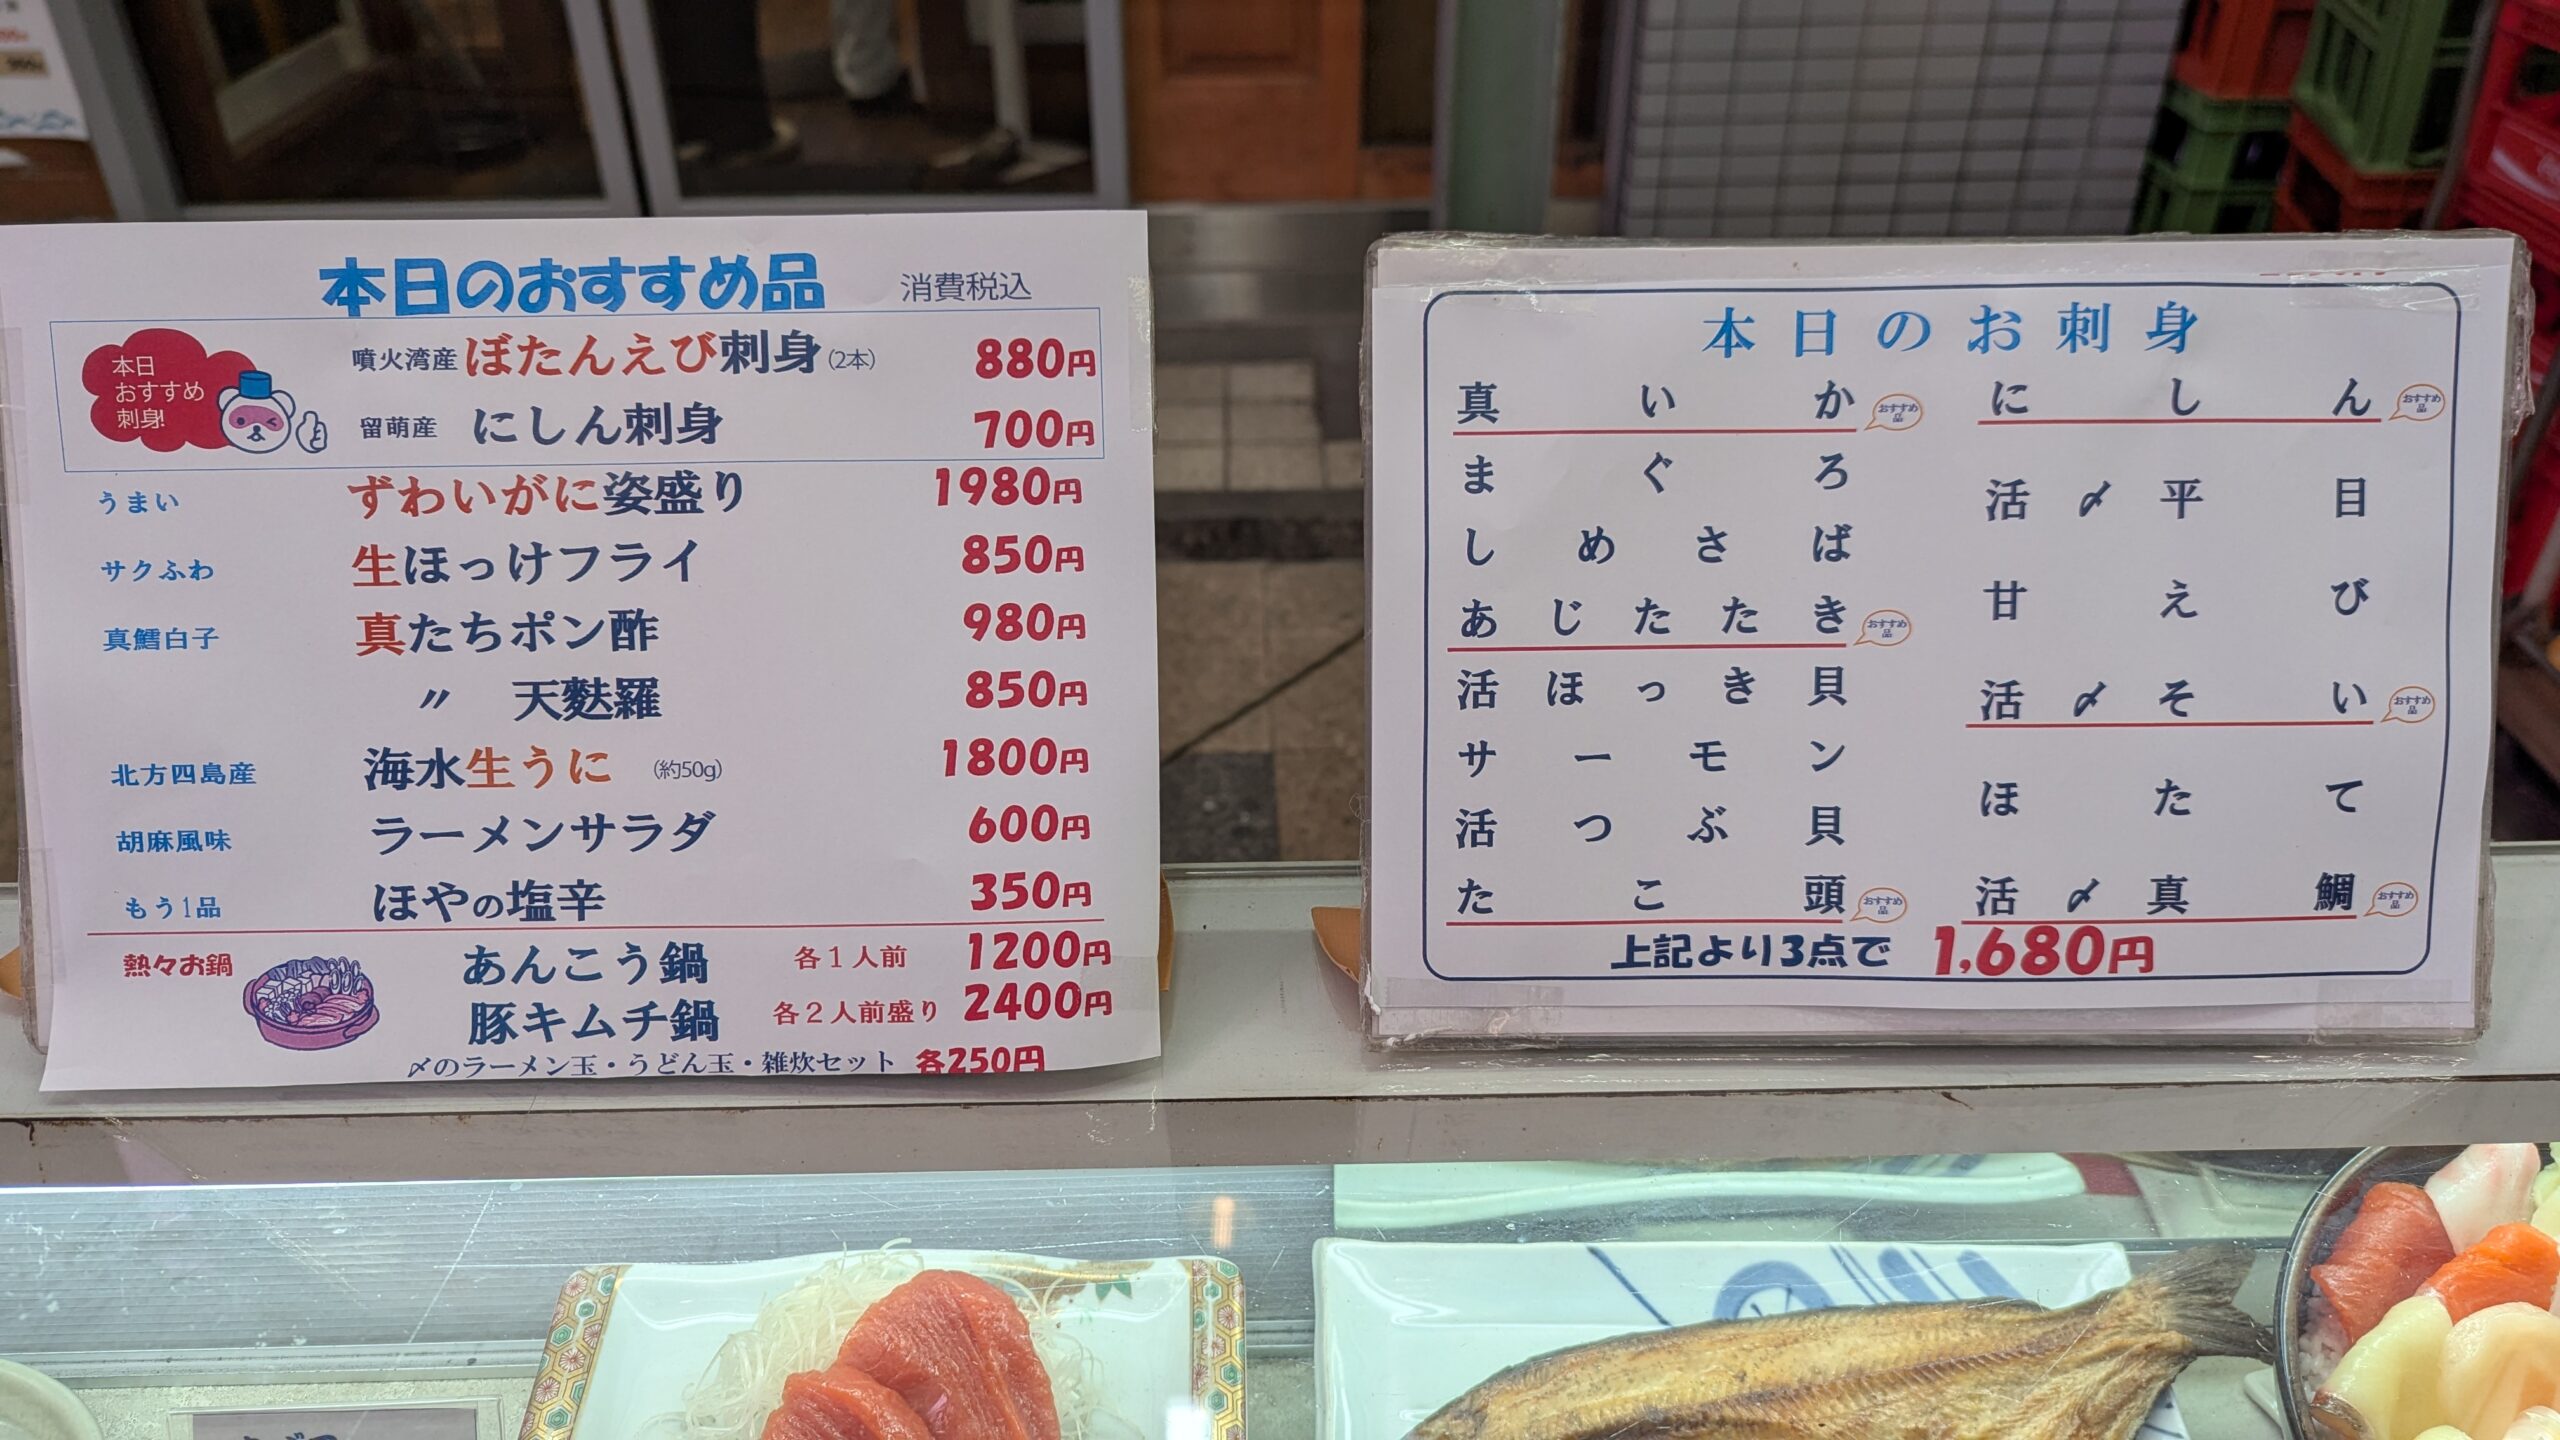 本日のおすすめ品 消費税込
本日
おすすめ
刺身!
噴火湾産 ぼたんえび刺身 (2本) 880円
留萌産 にしん刺身 700円
うまい ずわいがに姿盛り 1980円
サクふわ 生ほっけフライ 850円
真鱈白子 真たちポン酢 980円
〃 天麩羅 850円
北方四島産 海水生うに (約50g) 1800円
胡麻風味 ラーメンサラダ 600円
もう1品 ほやの塩辛 350円
熱々お鍋 あんこう鍋 各1人前 1200円
豚キムチ鍋 各2人前盛り 2400円
〆のラーメン玉・うどん玉・雑炊セット 各250円
本日のお刺身
真いか おすすめ品
まぐろ
しめさば
あじたたき おすすめ品
活ほっき貝
サーモン
活つぶ貝
たこ頭 おすすめ品
にしん おすすめ品
活〆平目
甘えび
活〆そい おすすめ品
ほたて
活〆真鯛 おすすめ品
上記より3点で 1,680円